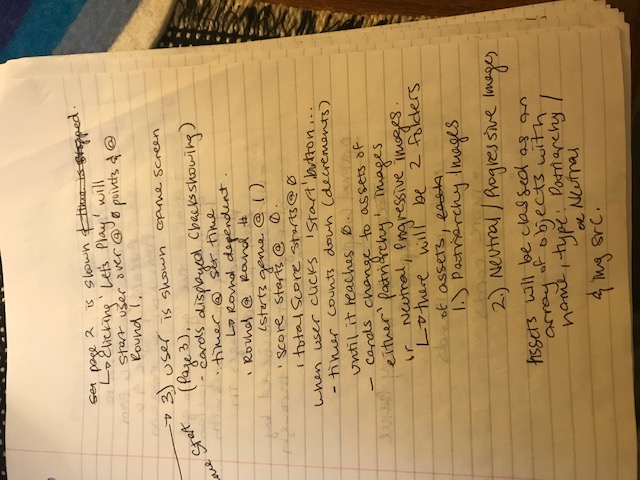 set page 2 is shown & time is stopped.
↳ Clicking 'Let's Play' will
start user over @ 0 points & @
Round 1.
→ 3) User is shown Game Screen
(Page 3).
me Start
- cards displayed (backs showing)
· timer @ set time
↳ Round dependent.
· Round @ Round #
(starts game @ 1)
· score starts @ 0.
· total score starts @ 0
When user clicks 'Start' button...
- timer counts down (decrements)
until it reaches 0.
- cards change to assets of
either 'Patriarchy' images
or Neutral, Progressive Images.
↳ there will be 2 folders
of assets, each
1.) Patriarchy Images
2.) Neutral / Progressive Images
Assets will be classed as an
array of objects with
name, type: Patriarchy /
or Neutral
& img src.